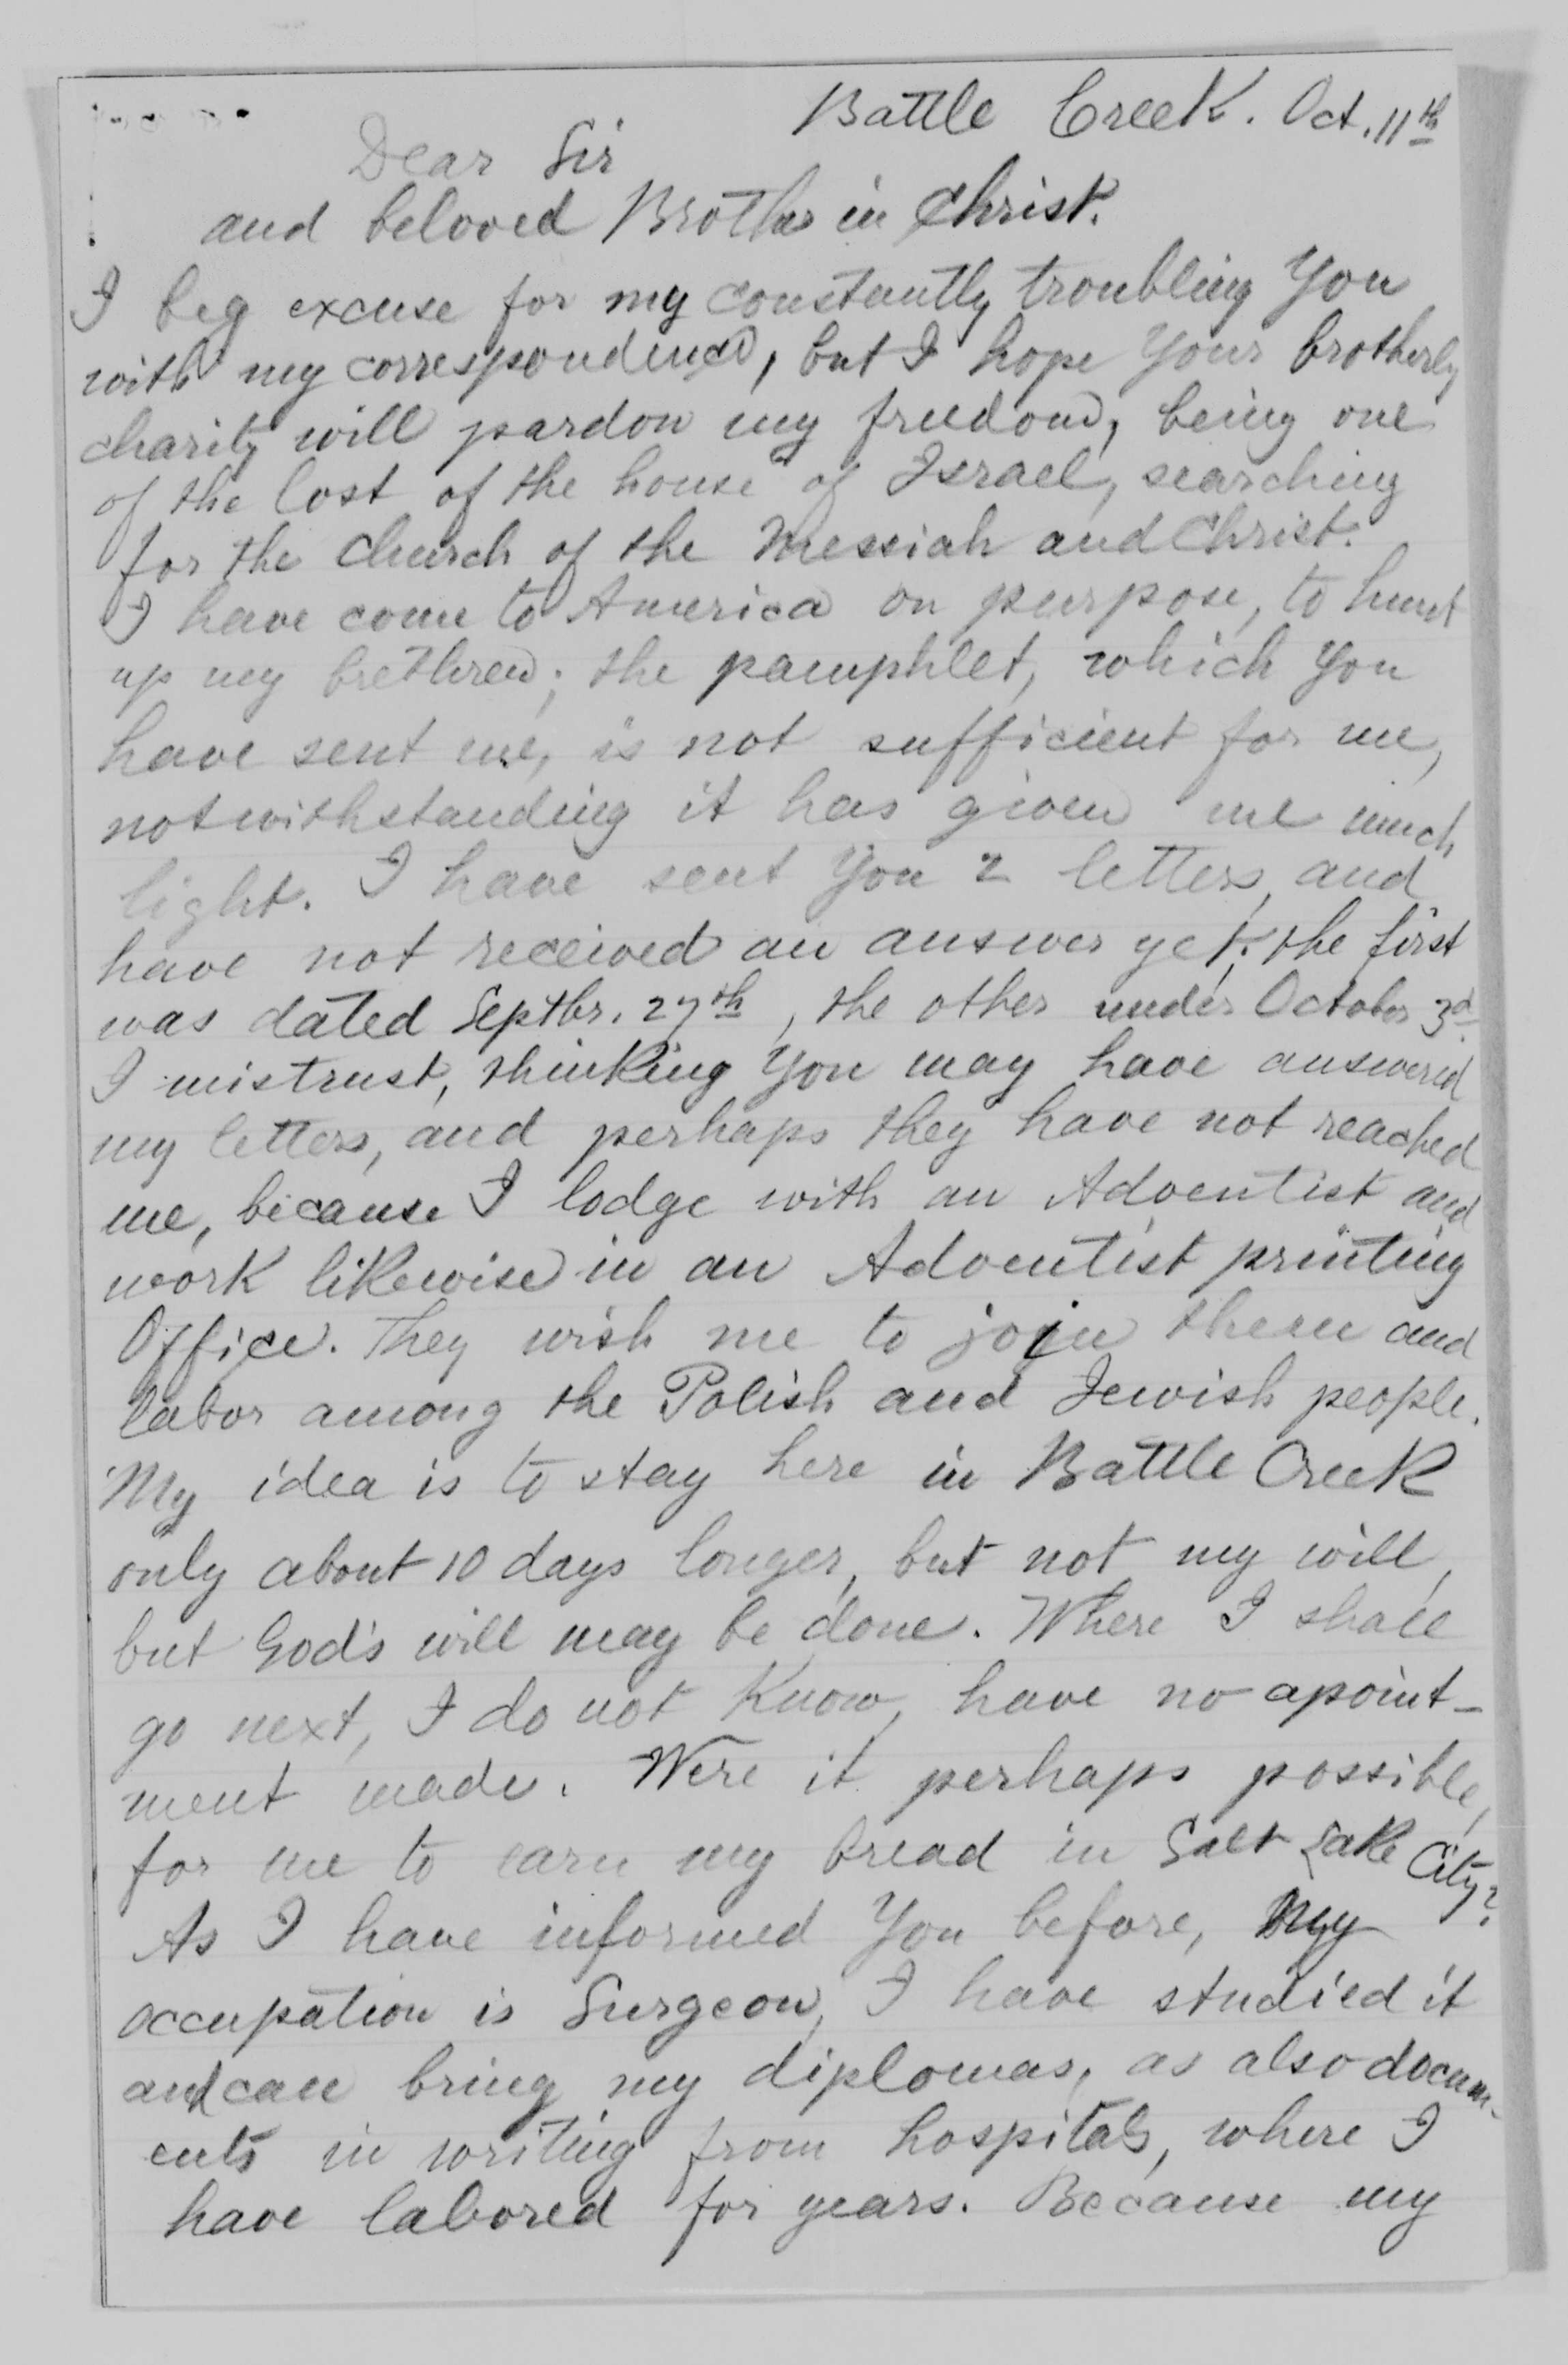 Battle Creek. Oct. 11th
Dear Sir
and beloved Brother in Christ.
I beg excuse for my constantly troubling You
with my correspondence, but I hope Your brotherly
charity will pardon my freedom, being one
of the lost of the house of Israel, searching
for the church of the Messiah and Christ.
I have come to America on purpose, to hunt
up my brethren; the pamphlet, which You
have sent me, is not sufficient for me,
notwithstanding it has given me much
light. I have sent You 2 letters, and
have not received an answer yet; the first
was dated Septbr. 27th, the other under October 3d
I mistrust, thinking You may have answered
my letters, and perhaps they have not reached
me, because I lodge with an Adventist and
work likewise in an Adventist printing
Office. They wish me to join them and
labor among the Polish and Jewish people.
My idea is to stay here in Battle Creek
only about 10 days longer, but not my will,
but God's will may be done. Where I shall
go next, I do not know, have no apoint-
ment made. Were it perhaps possible,
for me to earn my bread in Salt Lake City?
As I have informed You before, my
occupation is Surgeon, I have studied it
and can bring my diplomas, as also docum-
ents in writing from hospitals, where I
have labored for years. Because my